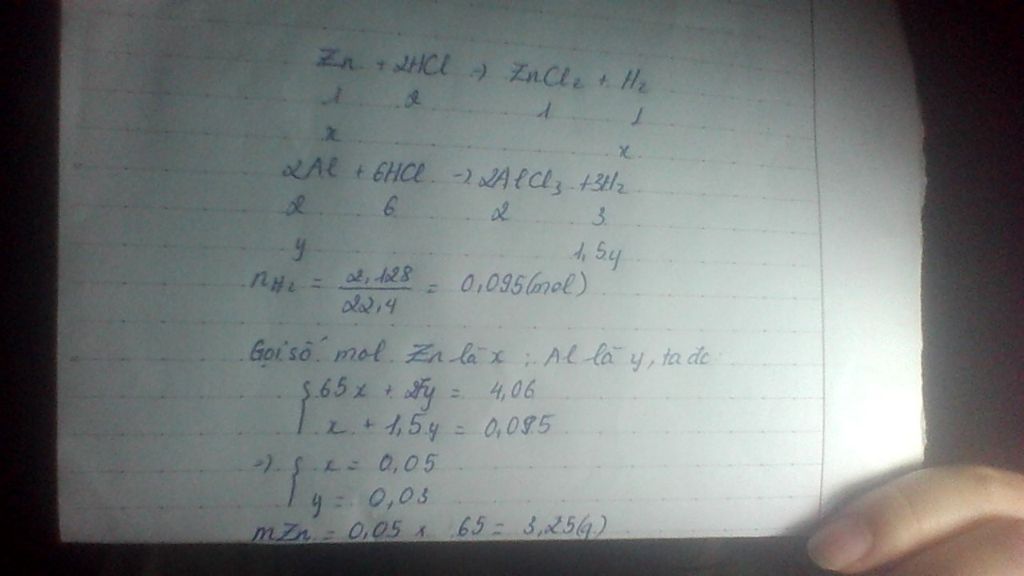 Zn + 2HCl → ZnCl2 + H2
1 2 1 1
x x
2Al + 6HCl → 2AlCl3 + 3H2
2 6 2 3
y 1,5y
nH2 = 2,128/22,4 = 0,095(mol)
Gọi số mol Zn là x ; Al là y, ta đc
{ 65x + 27y = 4,06
x + 1,5y = 0,095
=> { x = 0,05
y = 0,03
mZn = 0,05 x 65 = 3,25(g)